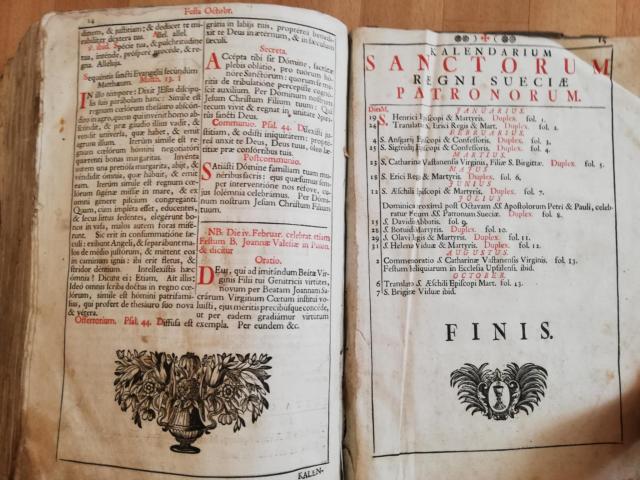 Festa Octobr.
24
dinem, & justitiam: & deducet te mi-
rabiliter dextera tua. Allel. allel.
℣. ibid. Spécie tua, & pulchritúdine
tua, inténde, próspere procéde, & re-
gna. Alleluja.
Sequentia sancti Evangelii secundùm
Matthæum. 13. f
IN illo tempore: Dixit JEsus discipu-
lis suis parábolam hanc: Símile est
regnum cœlórum thesáuro abscón-
dito in agro, quem qui invénit homo ab-
scóndit, & præ gáudio illíus vadit, &
vendit univérsa, quæ habet, & emit
agrum illum. Iterùm símile est re-
gnum cœlórum hómini negotiatóri
quærénti bonas margarítas. Invénta
autem una pretiósa margaríta, ábiit, &
véndidit ómnia, quæ hábuit, & emit
eam. Iterùm símile est regnum cœ-
lórum sagénæ missæ in mare, & ex
omni génere píscium congregánti.
Quam, cùm impléta esset, educéntes,
& secus littus sedéntes, elegérunt bo-
nos in vasa, malos autem foras misé-
runt. Sic erit in consummatióne sæ-
culi: exíbunt Angeli, & separábunt ma-
los de médio justórum, & mittent eos
in camínum ignis: ibi erit fletus, &
stridor déntium. Intellexístis hæc
ómnia? Dicunt ei: Etiam. Ait illis:
Ideò omnis scriba doctus in regno cœ-
lórum, símilis est hómini patrifamí-
lias, qui profert de thesáuro suo nova
& vétera.
Offertorium. Psal. 44. Diffúsa est
grátia in lábiis tuis, proptérea benedí-
xit te Deus in ætérnum, & in sæculum
sæculi.
Secreta.
ACcépta tibi sit Dómine, sacrátæ
plebis oblátio, pro tuórum ho-
nóre Sanctórum: quorum se méri-
tis de tribulatióne percepísse cognó-
scit auxílium. Per Dóminum nostrum
Jesum Christum Fílium tuum: Qui
tecum vivit & regnat in unitáte Spíri-
tûs sancti Deus.
Communio. Psal. 44. Dilexísti ju-
stítiam, & odísti iniquitátem: proptér-
ea unxit te Deus, Deus tuus, óleo læ-
títiæ præ consórtibus tuis.
Postcommunio.
SAtiásti Dómine famíliam tuam mu-
néribus sacris: ejus quæsumus sem-
per interventióne nos réfove, cu-
jus solémnia celebrámus. Per Dómi-
num nostrum Jesum Christum Fílium
tuum:
NB: Die iv. Februar. celebrat etiam
Festum B. Joannæ Valesiæ in
& dicitur
Oratio.
DEus, qui ad imitándum Beátæ Vir-
ginis Fílii tui Genitrícis virtútes,
novum per Beátam Joánnam sa-
crárum Vírginum Cœtum ínstitui vo-
luísti, ejus méritis precibúsque concéde,
ut per eádem gradiámur virtútum
exémpla. Per eúndem &c.
KALEN-
15
KALENDARIUM
SANCTORUM
REGNI SUECIÆ
PATRONORUM.
Dies M. JANUARIUS.
19 S. Henrici Episcopi & Martyris. Duplex. fol. 1.
24 Translatio S. Erici Regis & Mart. Duplex. fol. 2.
FEBRUARIUS.
4 S. Ansgarii Episcopi & Confessoris. Duplex. fol. 3.
S. Sigfridi Episcopi & Confessoris. Duplex. fol. 4.
MARTIUS.
23 S. Catharinæ Vastanensis Virginis, Filiæ S. Birgittæ. Duplex. fol. 5.
MAIUS.
18 S. Erici Regis & Martyris. Duplex. fol. 6.
JUNIUS.
12 S. Æschili Episcopi & Martyris. Duplex. fol. 7.
JULIUS.
Dominica proxima post Octavam SS. Apostolorum Petri & Pauli, celeb-
ratur Festum SS. Patronum Sueciæ. Duplex. fol. 8.
15 S. Davidis Abbatis. fol. 9.
28 S. Botuidi Martyris. Duplex. fol. 10.
29 S. Olavi Regis & Martyris. Duplex. fol. 11.
S. Helenæ Viduæ & Martyris. Duplex. fol. 12.
AUGUSTUS.
2 Commemoratio S. Catharinæ Vastanensis Virginis. fol. 13.
Festum Reliquiarum in Ecclesia Upsalensi. ibid.
OCTOBER.
6 Translatio S. Æschili Episcopi Mart. fol. 13.
7 S. Brigittæ Viduæ ibid.
FINIS.